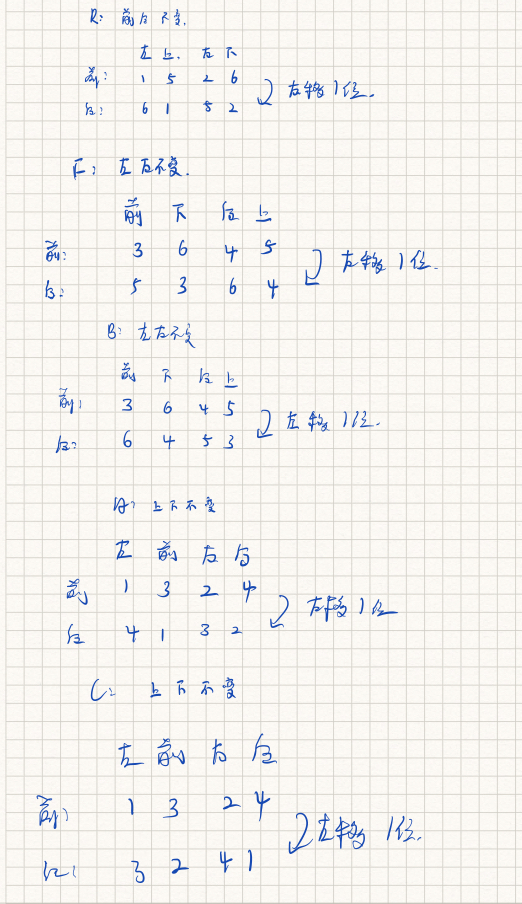 R: 前后不变.
左 上. 右 下
前: 1 5 2 6
后: 6 1 5 2
右移1位.
F: 左右不变.
前 下 后 上
前: 3 6 4 5
后: 5 3 6 4
右移1位.
B: 左右不变
前 下 后 上
前: 3 6 4 5
后: 6 4 5 3
左移1位.
A: 上下不变
左 前 右 后
前 1 3 2 4
后 4 1 3 2
右移1位
C: 上下不变
左 前 右 后
前: 1 3 2 4
后: 3 2 4 1
左移1位.